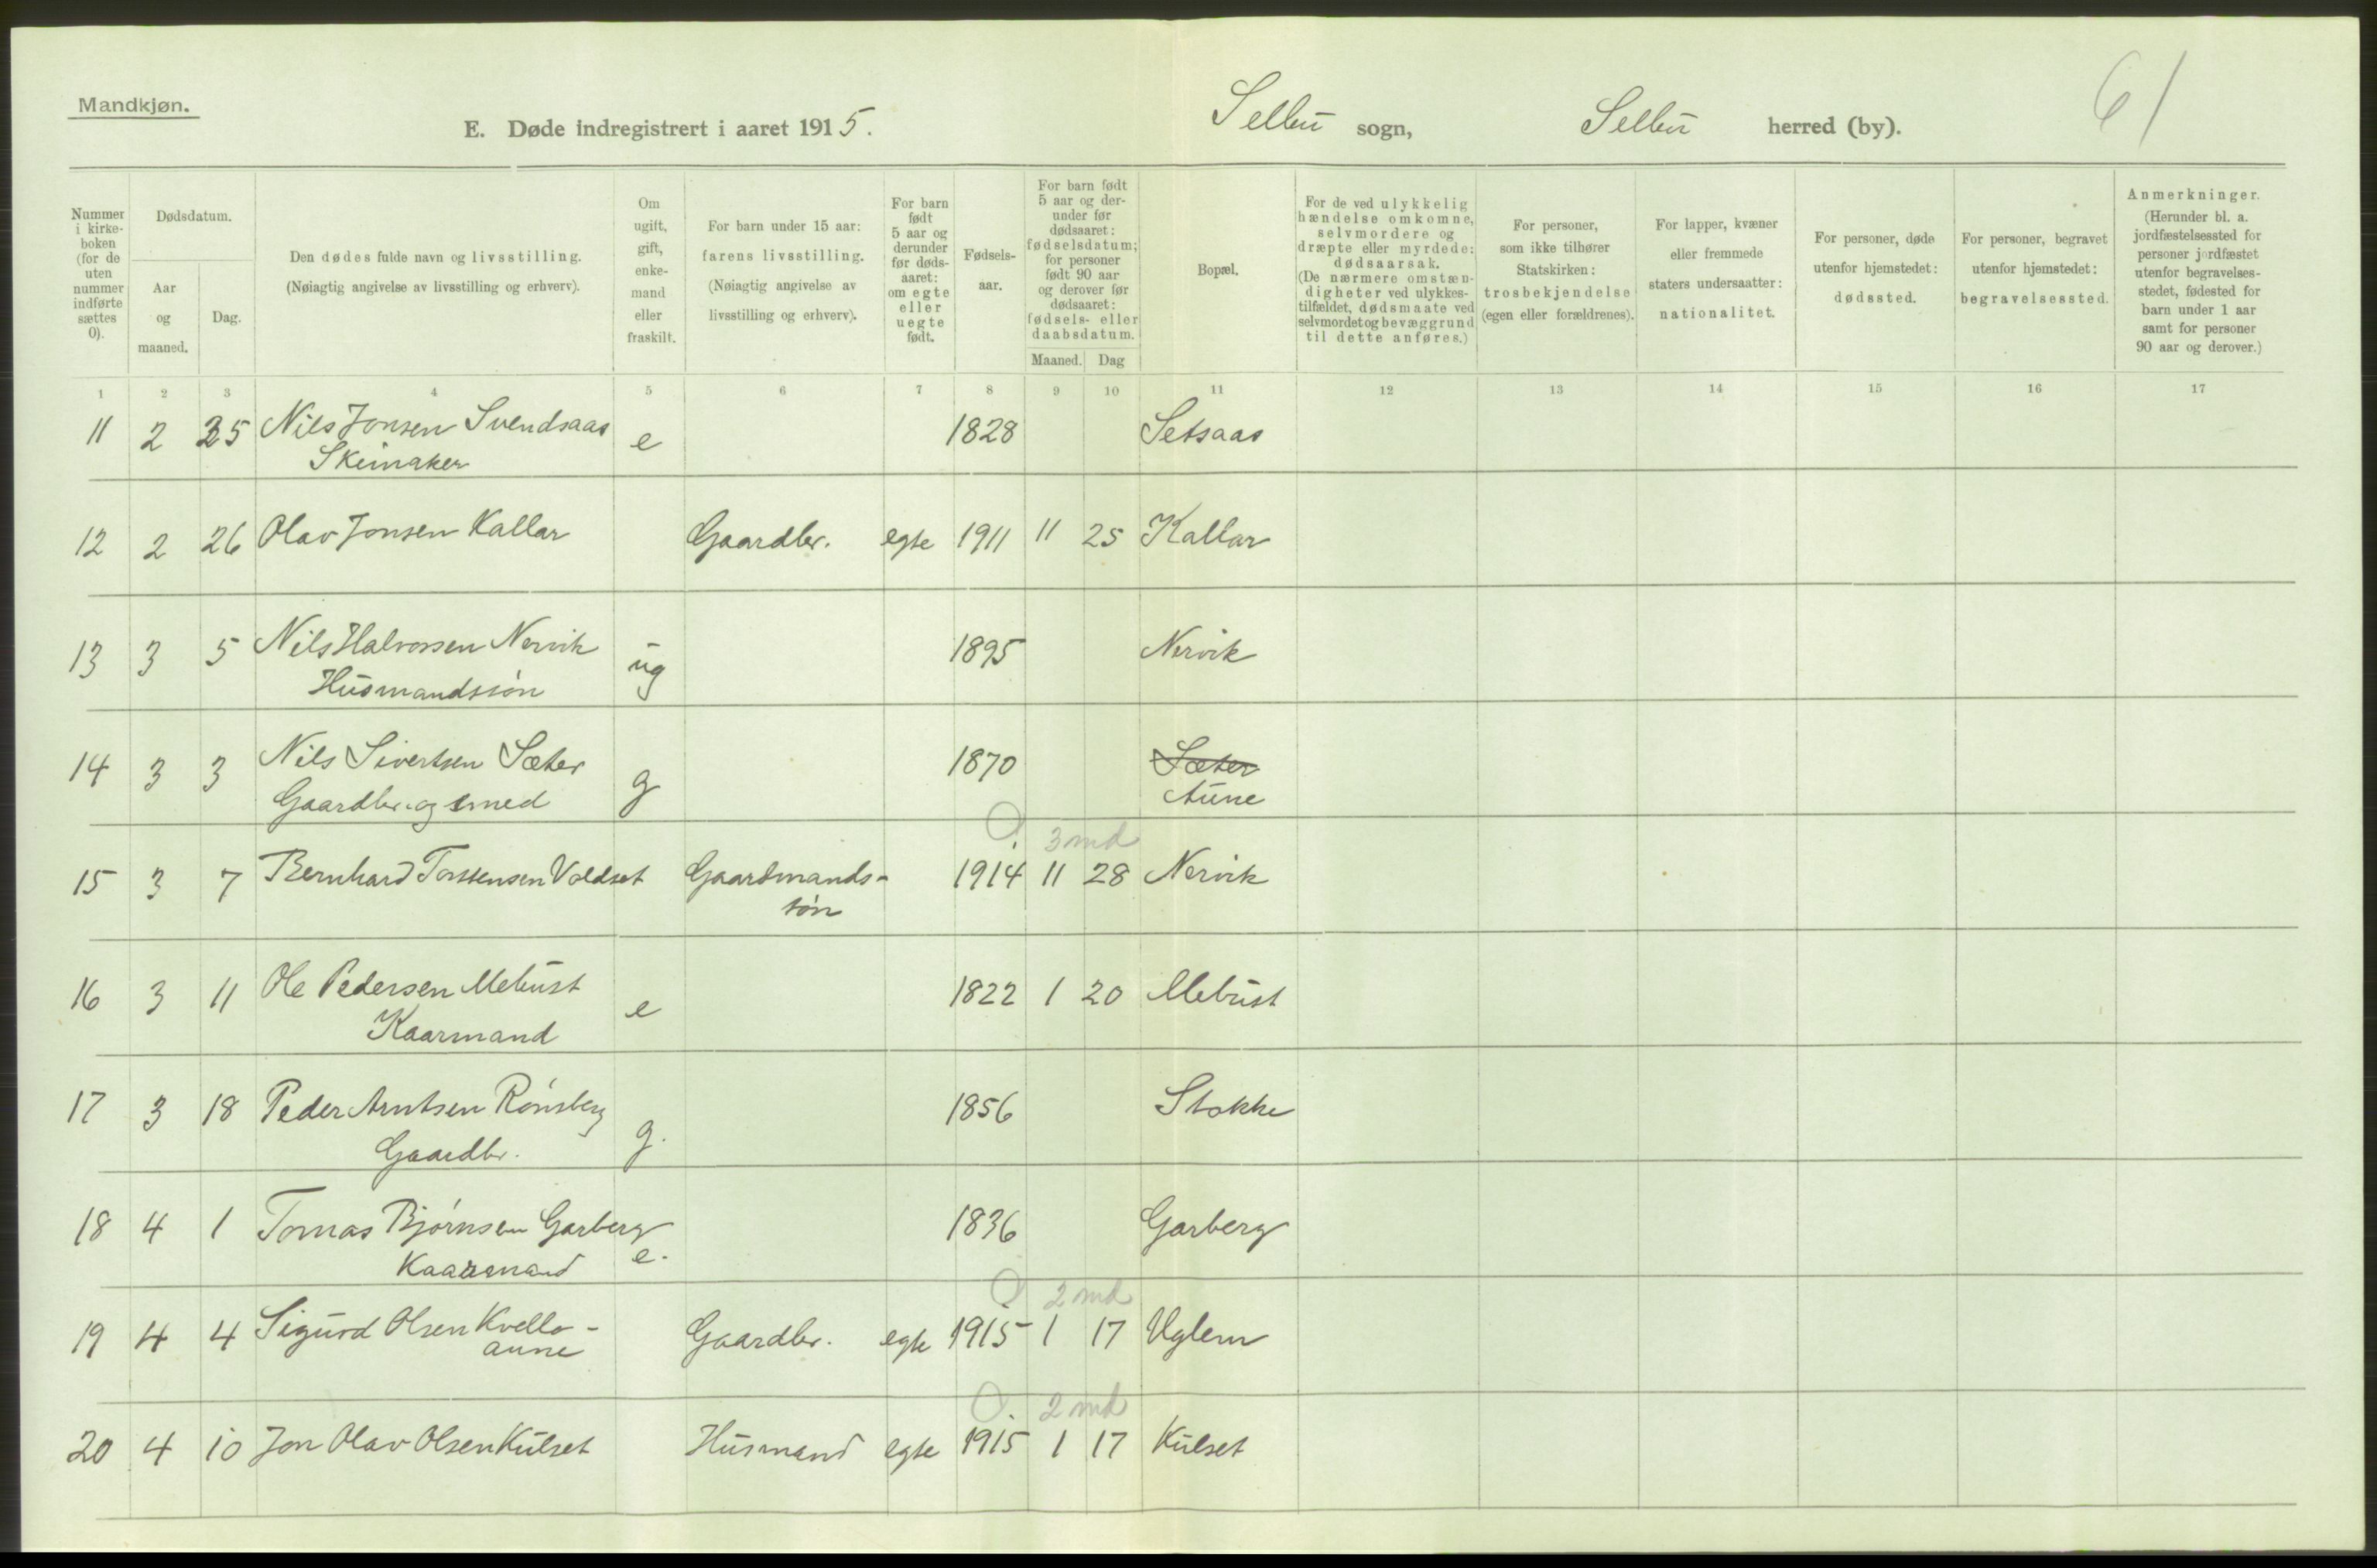 Mandkjøn.
E. Døde indregistrert i aaret 1915.
Selbu sogn,
Selbu herred (by).
61
Nummer i kirke-boken (for de uten nummer indførte sættes 0).
Dødsdatum.
Aar og maaned.
Dag.
Den dødes fulde navn og livsstilling.
(Nøiagtig angivelse av livsstilling og erhverv).
Om ugift, gift, enke-mand eller fraskilt.
For barn under 15 aar:
farens livsstilling.
(Nøiagtig angivelse av livsstilling og erhverv).
For barn født 5 aar og derunder før døds-aaret: om egte eller uegte født.
Fødsels-aar.
For barn født 5 aar og der-under før dødsaaret: fødselsdatum; for personer født 90 aar og derover før dødsaaret: fødsels- eller daabsdatum.
Maaned. Dag
Bopæl.
For de ved ulykkelig hændelse omkomne, selvmordere og dræpte eller myrdede: dødsaarsak.
(De nærmere omstæn-digheter ved ulykkes-tilfældet, dødsmaate ved selvmordet og bevæggrund til dette anføres.)
For personer, som ikke tilhører Statskirken: trosbekjendelse (egen eller forældrenes).
For lapper, kvæner eller fremmede staters undersaatter: nationalitet.
For personer, døde utenfor hjemstedet: dødssted.
For personer, begravet utenfor hjemstedet: begravelsessted.
Anmerkninger.
(Herunder bl. a. jordfæstelsessted for personer jordfæstet utenfor begravelses-stedet, fødested for barn under 1 aar samt for personer 90 aar og derover.)
1 2 3 4 5 6 7 8 9 10 11 12 13 14 15 16 17
11 2 25 Nils Jonsen Svendsaas e 1828 Setsaas
Skinaker
12 2 26 Olav Jonsen Kallar Gaardbr. egte 1911 11 25 Kallar
13 3 5 Nils Halvorsen Nervik ug 1895 Nervik
Husmandssøn
14 3 3 Nils Sivertsen Sæter g 1870 Sæter
Gaardbr. og smed Aune
0. 3 md
15 3 7 Bernhard Torstensen Voldset Gaardmands- 1914 11 28 Nervik
søn
16 3 11 Ole Pedersen Mebust e 1822 1 20 Mebust
Kaarmand
17 3 18 Peder Arntsen Rønsberg g. 1856 Stokke
Gaardbr.
18 4 1 Tomas Bjørnsen Garberg e. 1836 Garberg
Kaarmand
0. 2 md
19 4 4 Sigurd Olsen Kvello- Gaardbr. egte 1915 1 17 Uglem
aune
0. 2 md
20 4 10 Jon Olav Olsen Kulset Husmand egte 1915 1 17 Kulset